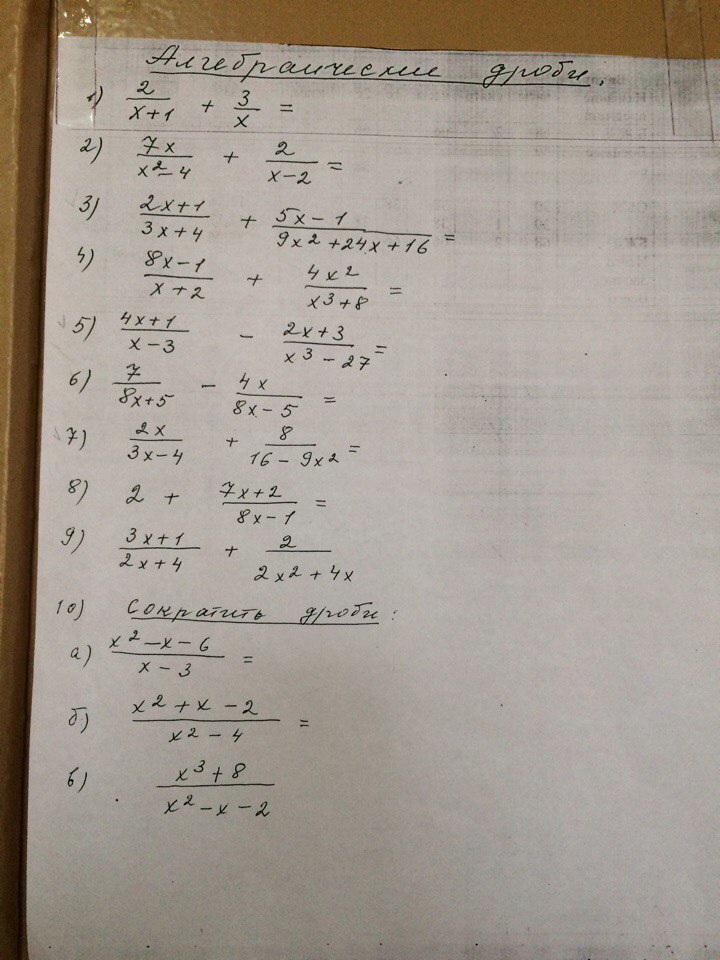 Алгебраические дроби.
1) 2/(x+1) + 3/x =
2) 7x/(x²-4) + 2/(x-2) =
3) (2x+1)/(3x+4) + (5x-1)/(9x²+24x+16) =
4) (8x-1)/(x+2) + 4x²/(x³+8) =
5) (4x+1)/(x-3) - (2x+3)/(x³-27) =
6) 7/(8x+5) - 4x/(8x-5) =
7) 2x/(3x-4) + 8/(16-9x²) =
8) 2 + (7x+2)/(8x-1) =
9) (3x+1)/(2x+4) + 2/(2x²+4x)
10) Сократить дроби:
а) (x²-x-6)/(x-3) =
б) (x²+x-2)/(x²-4) =
в) (x³+8)/(x²-x-2)